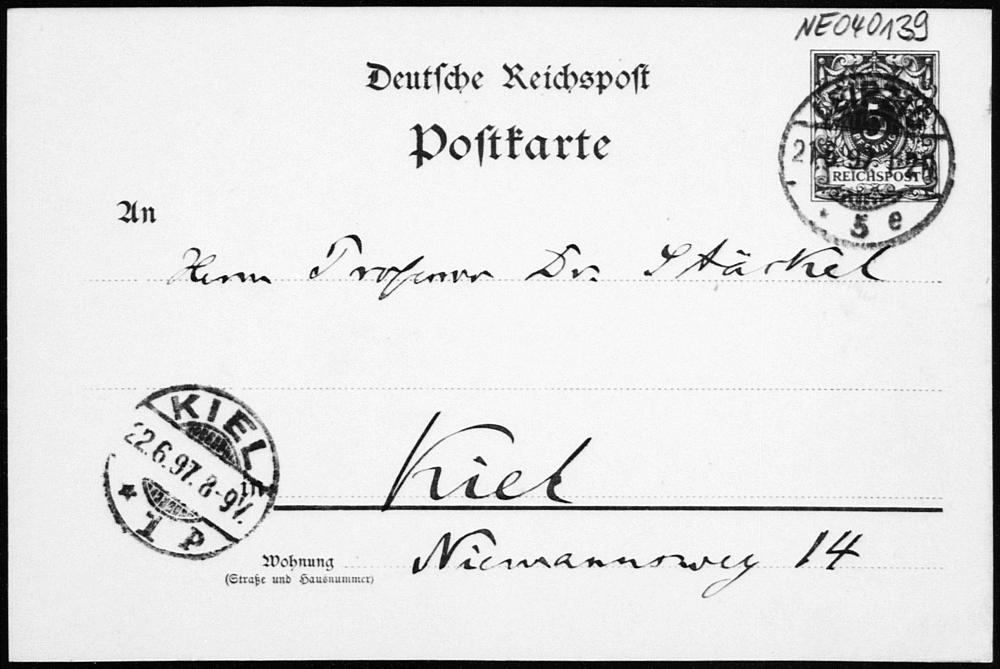 NE040139
Deutsche Reichspost
Postkarte
LEIPZIG
5
PFENNIG
REICHSPOST
21.6.97.
* 5 e
An
Herrn Professor Dr. Stäckel
KIEL
22.6.97. 8-9V.
* 1 P
Kiel
Wohnung
(Straße und Hausnummer)
Niemannsweg 14